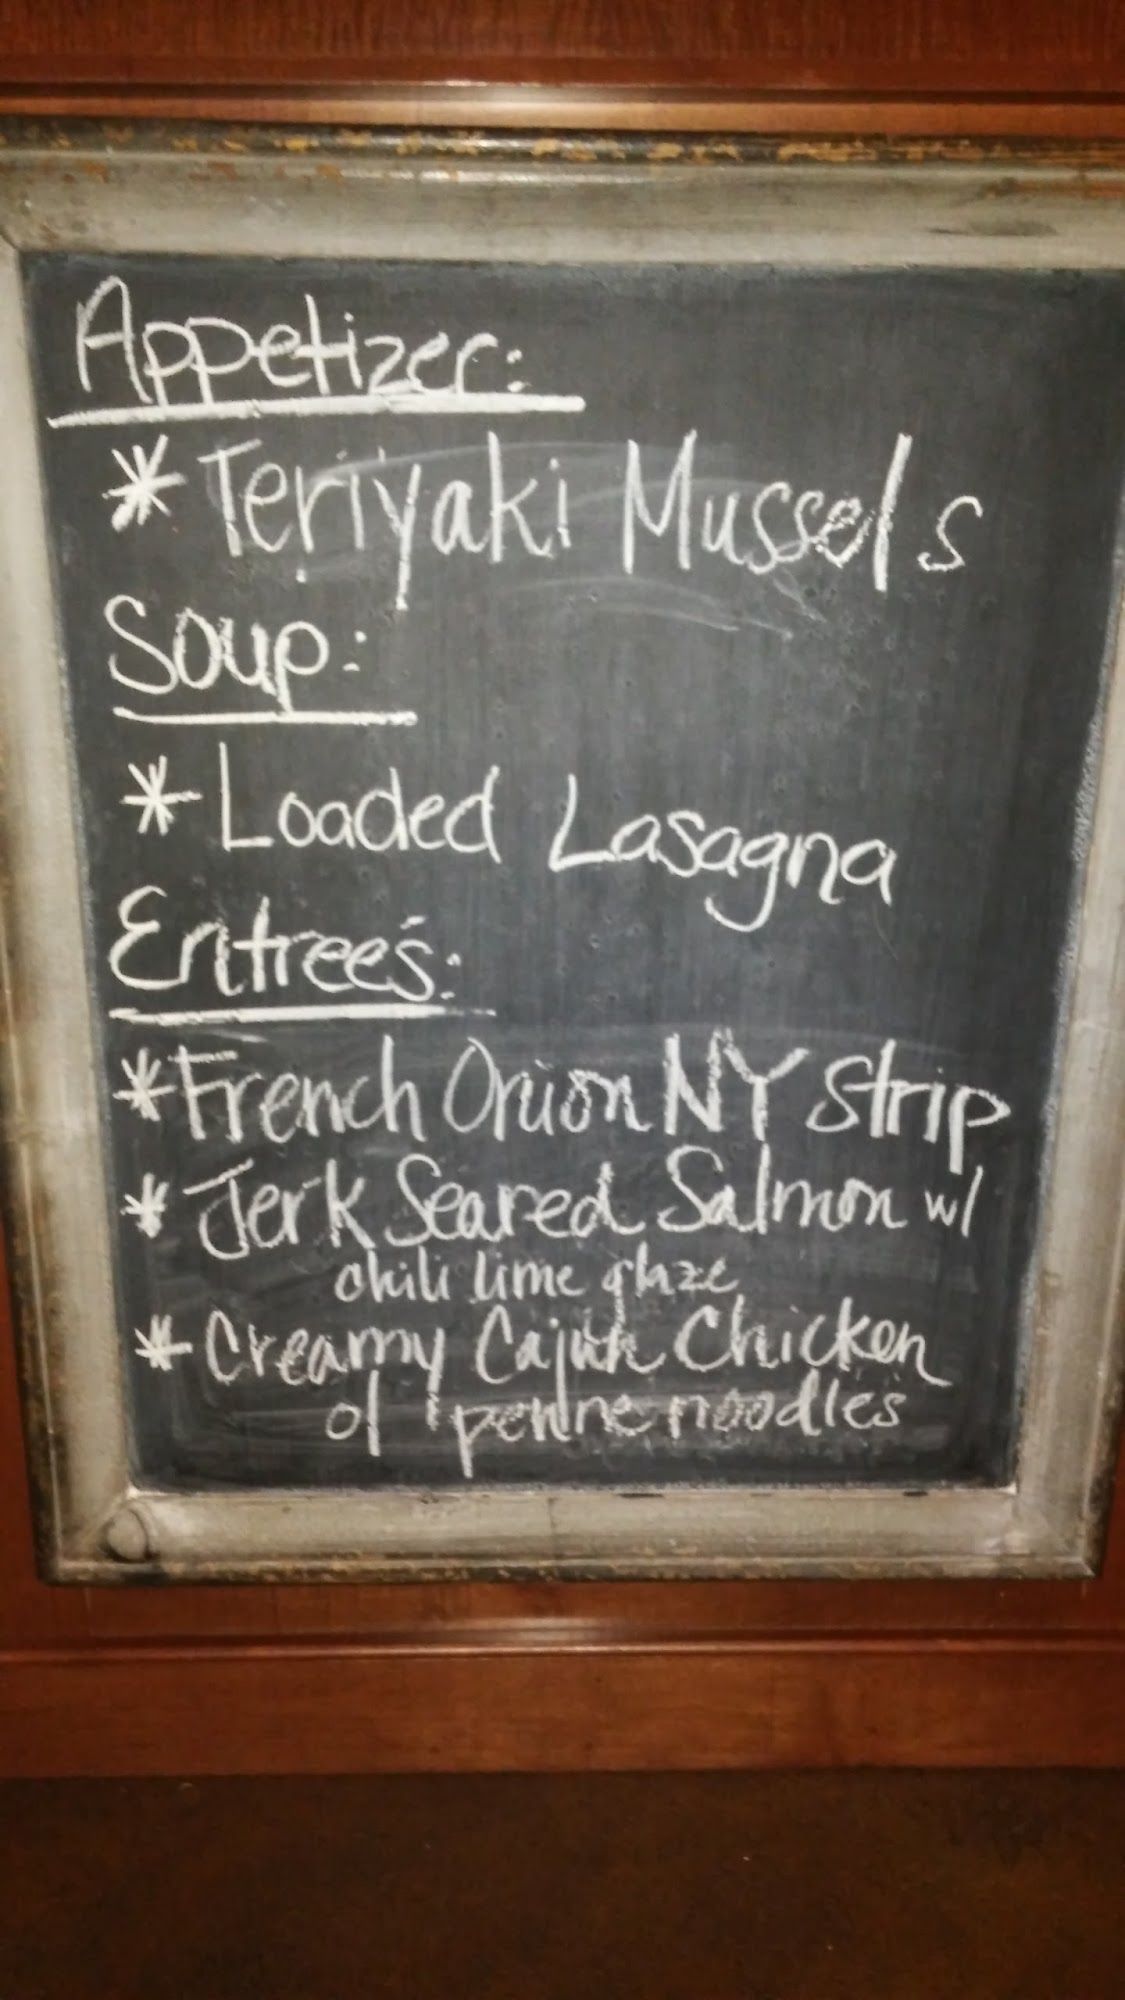 Appetizer:
* Teriyaki Mussels
Soup:
* Loaded Lasagna
Entree's:
* French Onion NY Strip
* Jerk Seared Salmon w/
chili lime glaze
* Creamy Cajun Chicken
o/ penne noodles